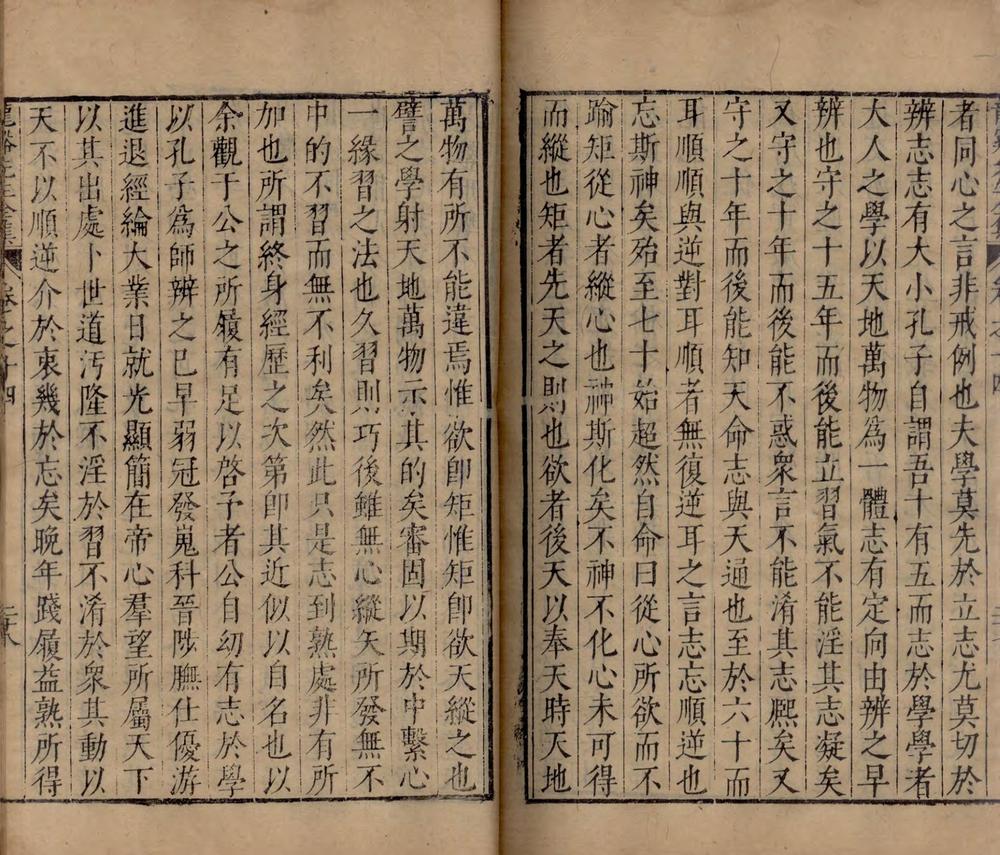 者同心之言非戒例也夫學莫先於立志尤莫切於
辨志志有大小孔子自謂吾十有五而志於學學者
大人之學以天地萬物為一體志有定向由辨之早
辨也守之十五年而後能立習氣不能淫其志凝矣
又守之十年而後能不惑衆言不能淆其志熈矣又
守之十年而後能知天命志與天通也至於六十而
耳順順與逆對耳順者無復逆耳之言志忘順逆也
忘斯神矣殆至七十始超然自命曰從心所欲而不
踰矩從心者縱心也神斯化矣不神不化心未可得
而縱也矩者先天之則也欲者後天以奉天時天地
萬物有所不能違焉惟欲卽矩惟矩卽欲天縱之也
譬之學射天地萬物示其的矣審固以期於中繫心
一緣習之法也久習則巧後雖無心縱矢所發無不
中的不習而無不利矣然此只是志到熟處非有所
加也所謂終身經歷之次第卽其近似以自名也以
余觀于公之所履有足以啓予者公自幼有志於學
以孔子爲師辨之已早弱冠發嵬科晉陟膴仕優游
進退經綸大業日就光顯簡在帝心羣望所屬天下
以其出處卜世道汚隆不淫於習不淆於衆其動以
天不以順逆介於衷幾於忘矣晚年踐履益熟所得
龍谿先生全集 卷之十四